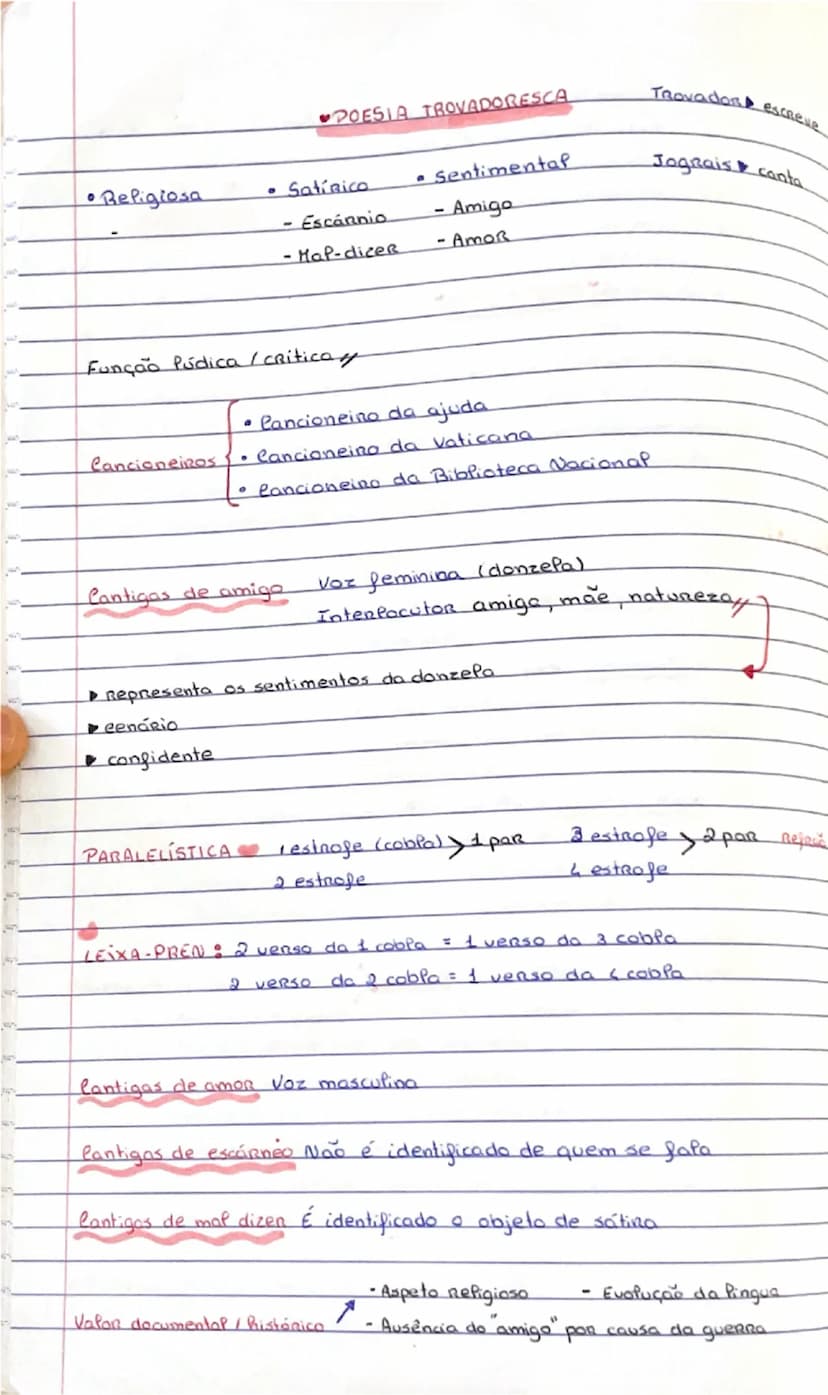 ♥POESIA TROVADORESCA
Trovador▶ escreve
• Religiosa • Satírico • Sentimental Jograis▶ canta
- - Escárnio - Amigo
- Mal-dicer - Amor
Função lúdica / crítica //
Cancioneiros { • Cancioneiro da ajuda
• Cancioneiro da Vaticana
• Cancioneiro da Biblioteca Nacional
Cantigas de amigo Voz feminina (donzela)
Interlocutor amiga, mãe, natureza //
▶ representa os sentimentos da donzela
▶ cenário
▶ confidente
PARALELÍSTICA ♥ 1 estrofe (cobla) > 1 par 3 estrofe > 2 par
2 estrofe 4 estrofe
LEIXA-PREN : 2 verso da 1 cobla = 1 verso da 3 cobla
2 verso da 2 cobla = 1 verso da 4 cobla
Cantigas de amor Voz masculina
Cantigas de escárneo Não é identificado de quem se fala
Cantigas de mal dizer É identificado o objeto de sátira
• Aspeto religioso - Evolução da língua
Valor documental / histórico ↗ - Ausência do "amigo" por causa da guerra